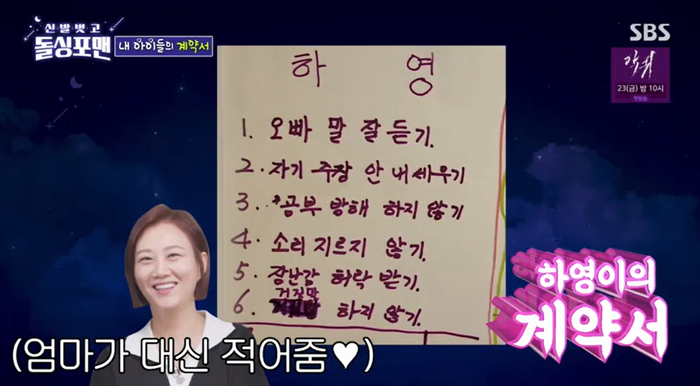 신발벗고
돌싱포맨
내 아이들의 계약서
SBS
악귀
23(금) 밤 10시
첫방송
하 영
1. 오빠 말 잘 듣기.
2. 자기 주장 안 내세우기
3. *공부 방해 하지 않기
4. 소리 지르지 않기.
5. 장난감 허락 받기.
거짓말
6. 하지 않기.
하영이의
계약서
(엄마가 대신 적어줌♥)